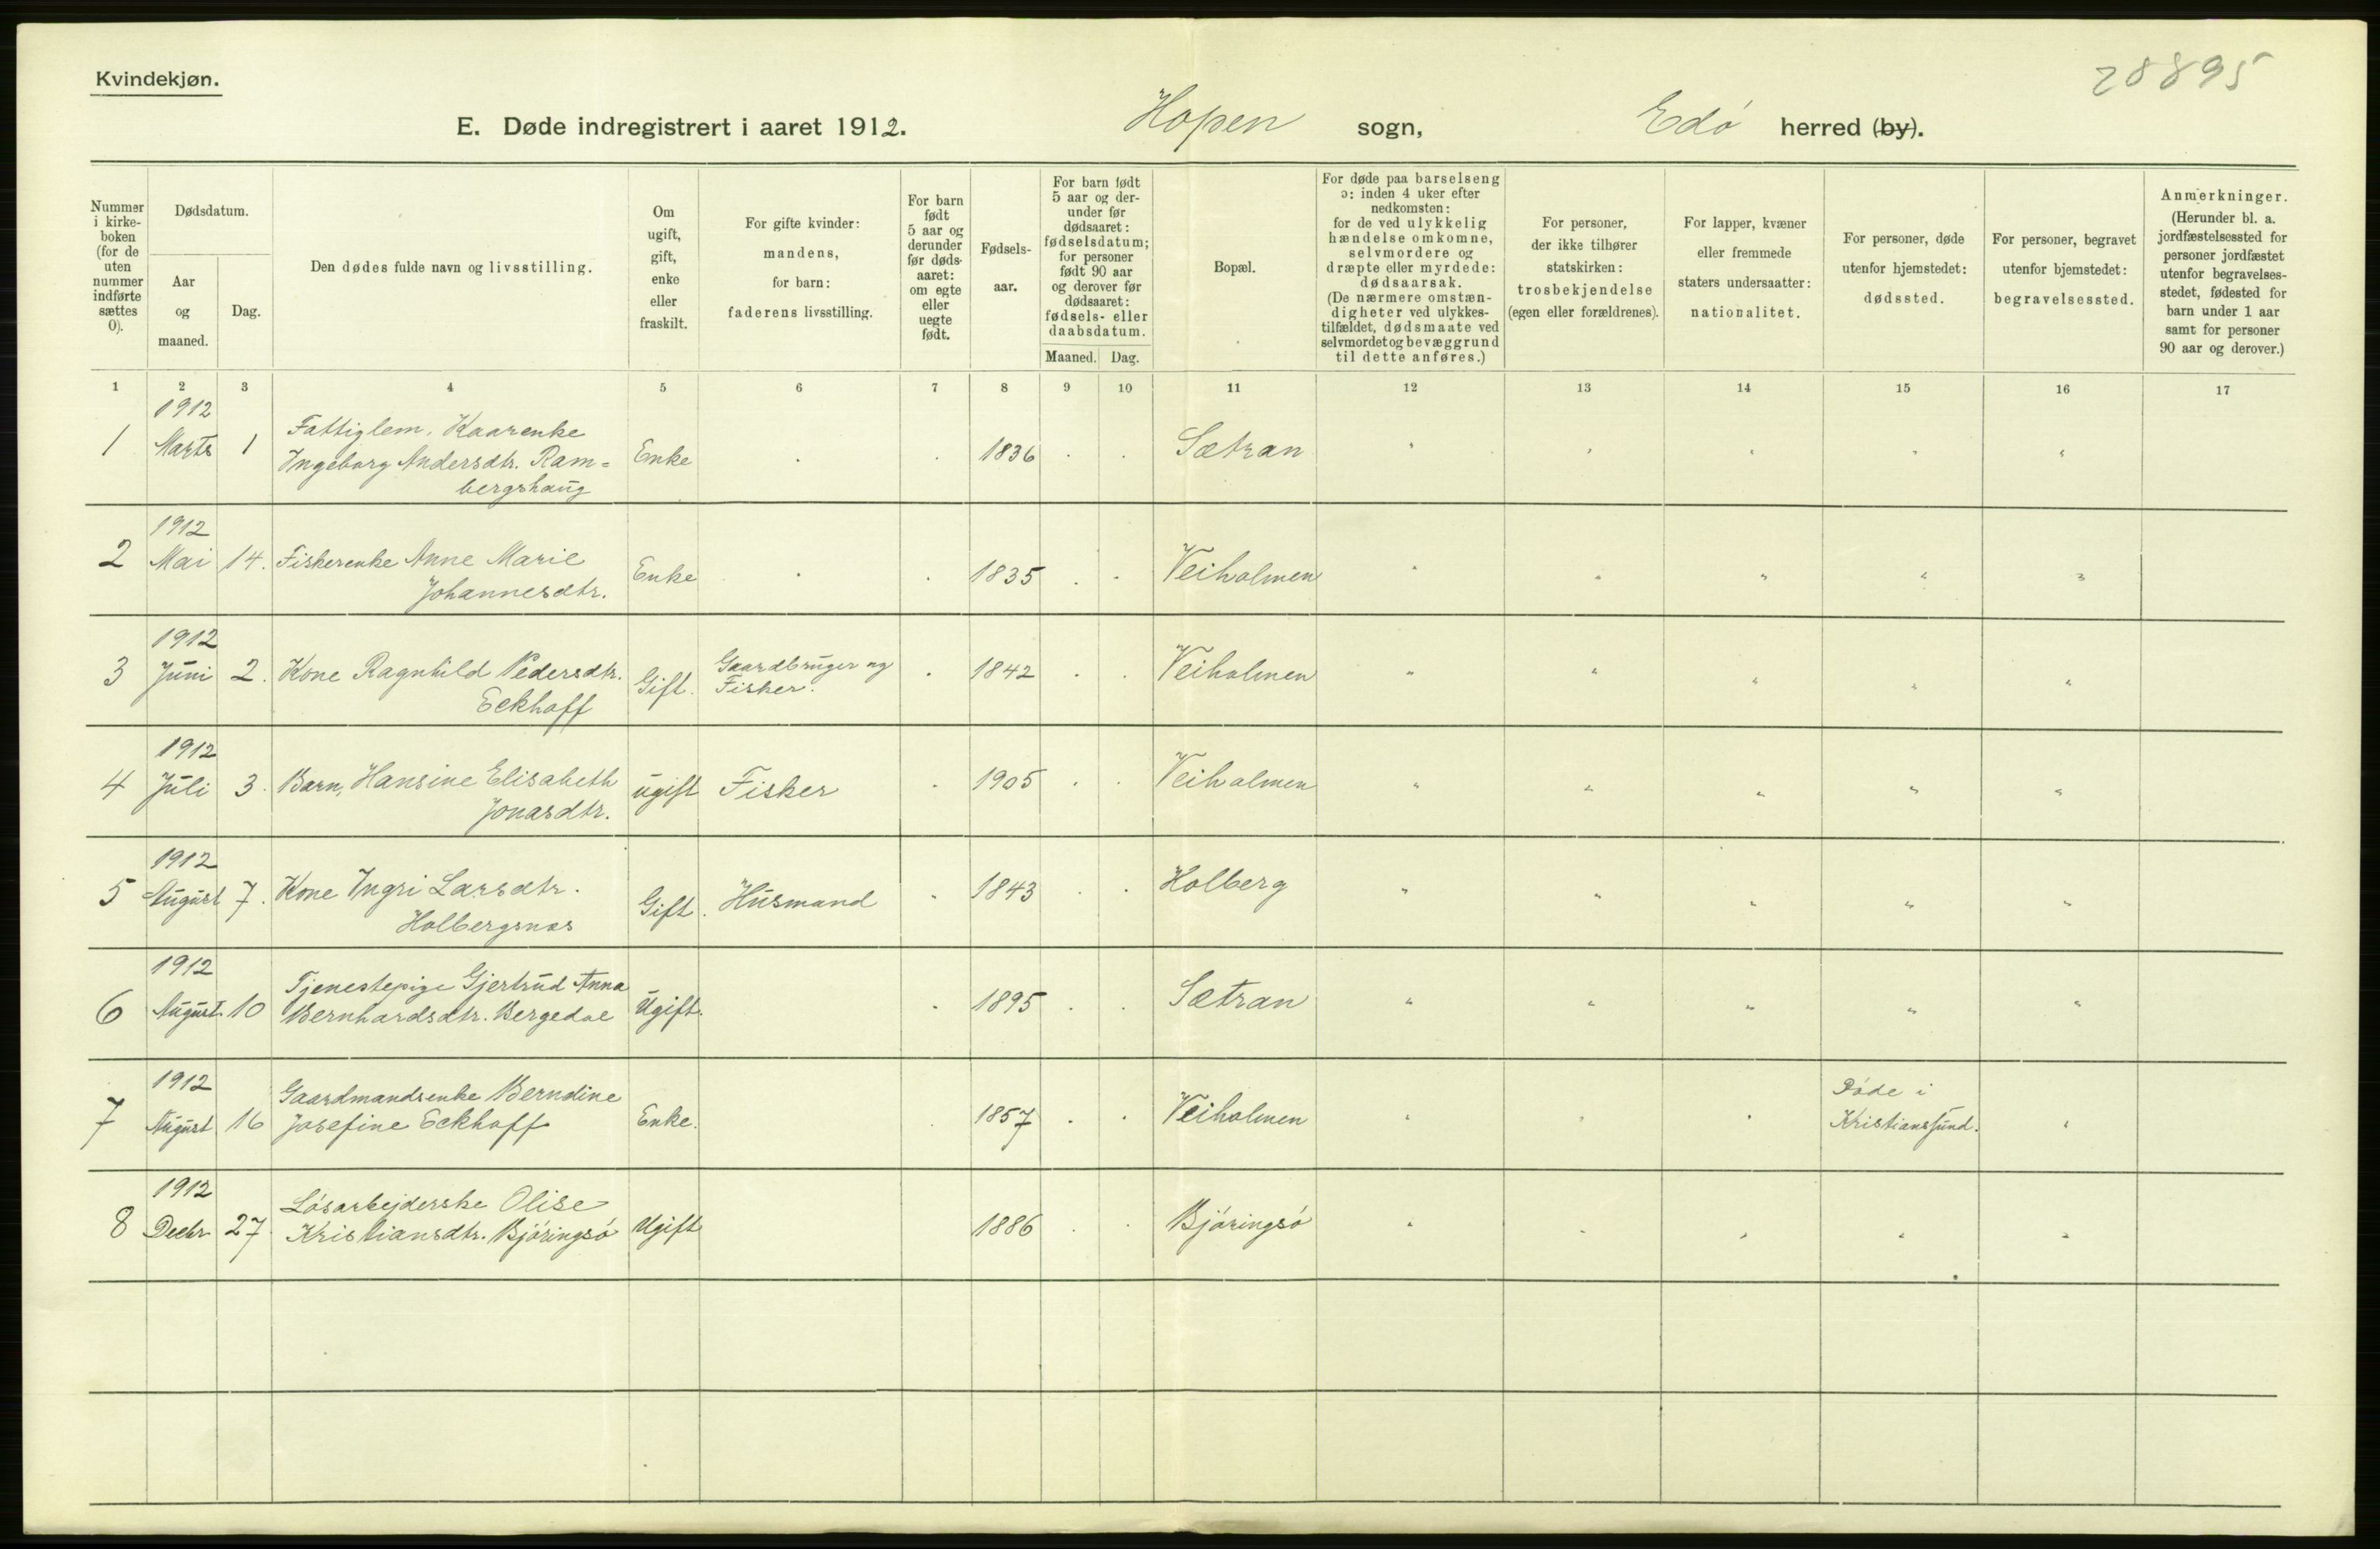 Kvindekjøn.
28895
E. Døde indregistrert i aaret 1912. Hopen sogn, Edö herred (by).
Nummer i kirke-boken (for de uten nummer indførte sættes 0).
Dødsdatum.
Aar og maaned.
Dag.
Den dødes fulde navn og livsstilling.
Om ugift, gift, enke eller fraskilt.
For gifte kvinder: mandens, for barn: faderens livsstilling.
For barn født 5 aar og derunder før døds-aaret: om egte eller uegte født.
Fødsels-aar.
For barn født 5 aar og der-under før dødsaaret: fødselsdatum; for personer født 90 aar og derover før dødsaaret: fødsels- eller daabsdatum.
Maaned. Dag.
Bopæl.
For døde paa barselseng ɔ: inden 4 uker efter nedkomsten: for de ved ulykkelig hændelse omkomne, selvmordere og dræpte eller myrdede: dødsaarsak. (De nærmere omstæn-digheter ved ulykkes-tilfældet, dødsmaate ved selvmordet og bevæggrund til dette anføres.)
For personer, der ikke tilhører statskirken: trosbekjendelse (egen eller forældrenes).
For lapper, kvæner eller fremmede staters undersaatter: nationalitet.
For personer, døde utenfor hjemstedet: dødssted.
For personer, begravet utenfor hjemstedet: begravelsessted.
Anmerkninger. (Herunder bl. a. jordfæstelsessted for personer jordfæstet utenfor begravelses-stedet, fødested for barn under 1 aar samt for personer 90 aar og derover.)
1 2 3 4 5 6 7 8 9 10 11 12 13 14 15 16 17
1912
1 Marts 1 Fattiglem. Kaarenke
Ingeborg Andersdtr. Ram= Enke 1836 Sætran
bergshaug
1912
2 Mai 14. Fiskerenke Anne Marie
Johannesdtr. Enke 1835 Veiholmen
1912
3 Juni 2. Kone Ragnhild Pedersdtr. Gift. Gaardbruger og 1842 Veiholmen
Eckhoff Fisker.
1912
4 Juli 3. Barn, Hansine Elisabeth ugift Fisker 1905 Veiholmen
Jonasdtr.
1912
5 August 7. Kone Ingri Larsdtr. Gift. Husmand 1843 Holberg
Holbergsnæs
1912
Tjenestepige Gjertrud Anna
6 August. 10 Bernhardsdtr. Bergedal Ugift. 1895 Sætran
1912
Gaardmandsenke Berndine Døde i
7 August 16 Josefine Eckhoff Enke. 1857 Veiholmen Kristianssund.
1912
Lösarbejderske Olise
8 Decbr. 27. Kristiansdtr. Björingsö Ugift 1886 Björingsö